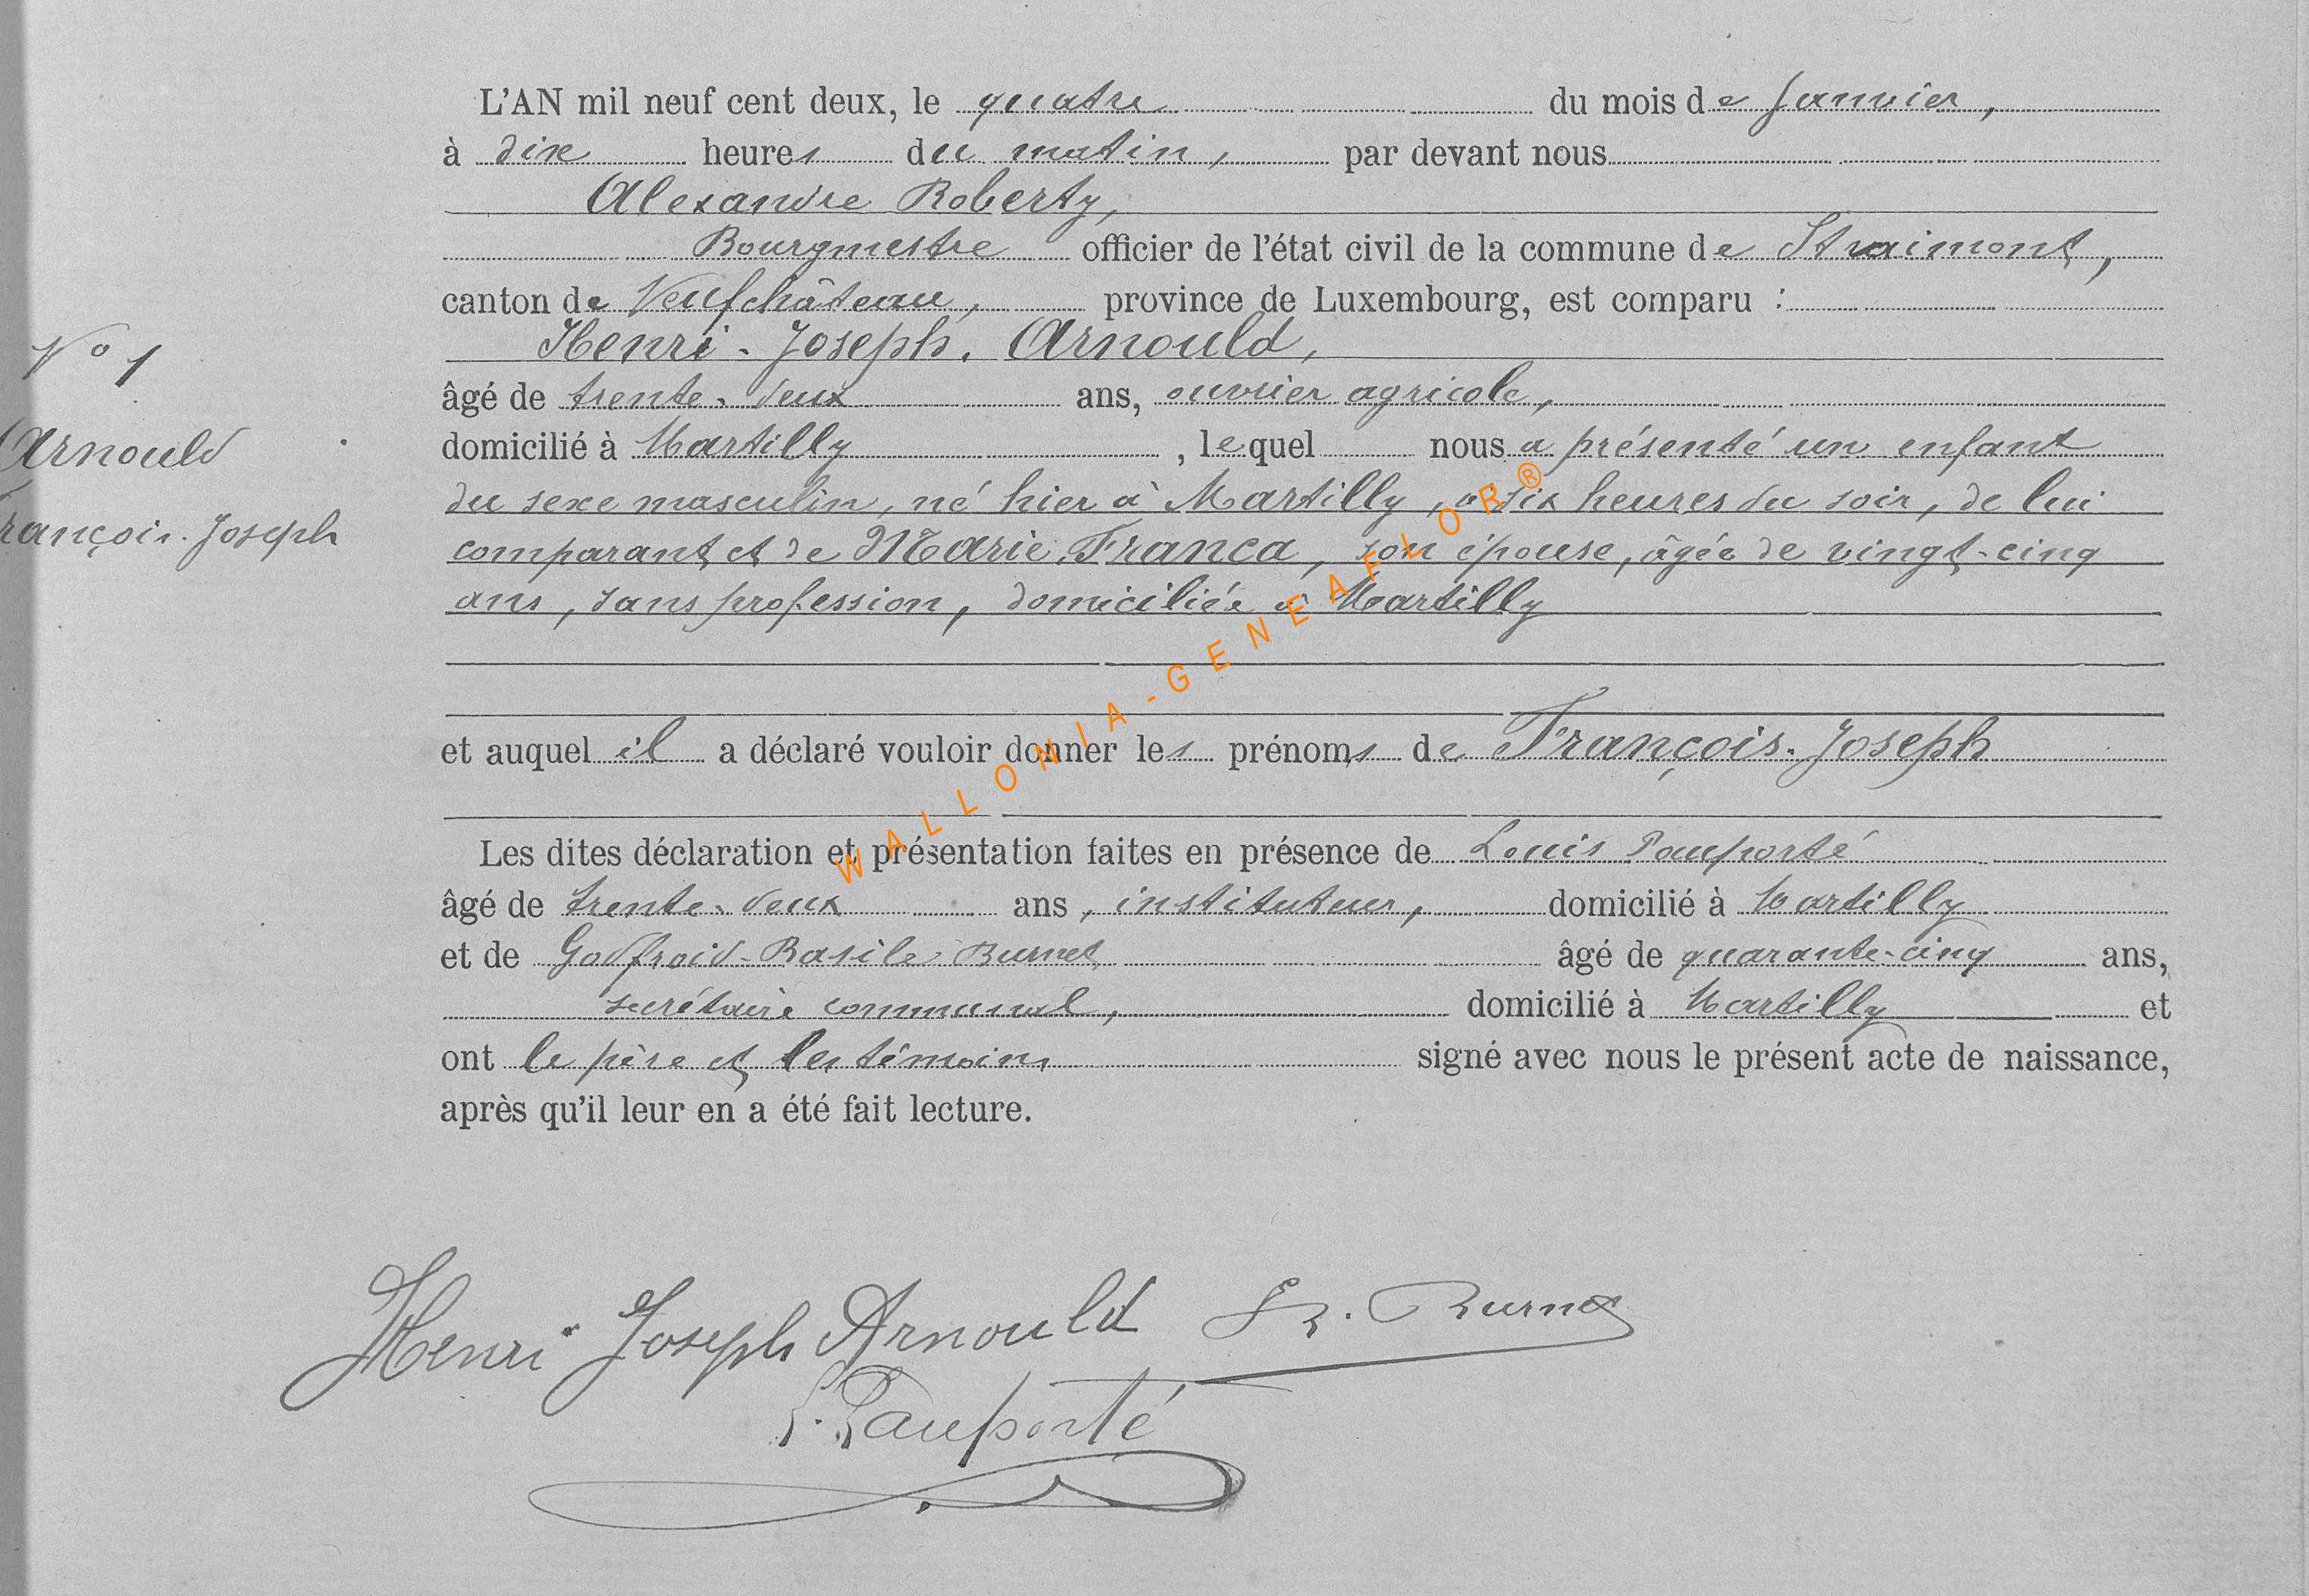 L'AN mil neuf cent deux, le quatre du mois de Janvier,
à dix heures du matin, par devant nous
Alexandre Roberty,
Bourgmestre officier de l'état civil de la commune de Straimont,
canton de Neufchâteau, province de Luxembourg, est comparu :
Henri-Joseph Arnould,
âgé de trente-deux ans, ouvrier agricole,
domicilié à Martilly, lequel nous a présenté un enfant
du sexe masculin, né hier à Martilly, à six heures du soir, de lui
comparant et de Marie Franca, son épouse, âgée de vingt-cinq
ans, sans profession, domiciliée à Martilly
et auquel il a déclaré vouloir donner les prénoms de François-Joseph
Les dites déclaration et présentation faites en présence de Louis Pauporté
âgé de trente-deux ans, instituteur, domicilié à Martilly
et de Godfroid-Basile Burnet âgé de quarante-cinq ans,
secrétaire communal, domicilié à Martilly et
ont le père et les témoins signé avec nous le présent acte de naissance,
après qu'il leur en a été fait lecture.
N° 1
Arnould
rançois-Joseph
Henri Joseph Arnould Burnet
L. Pauporté
WALLONIA-GENEAFLOR®